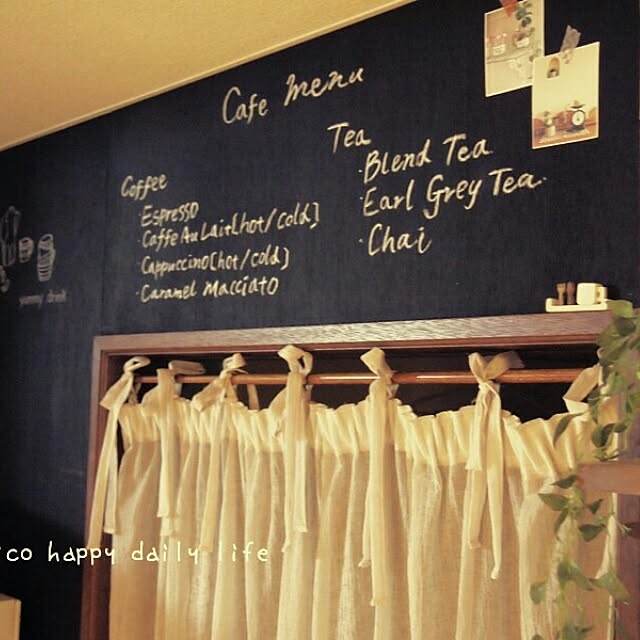 Cafe menu
Coffee
·Espresso
·Caffe Au Lait[hot/cold]
·Cappuccino[hot/cold]
·Caramel Macciato
Tea
·Blend Tea
·Earl Grey Tea
·Chai
yummy drink
co happy daily life